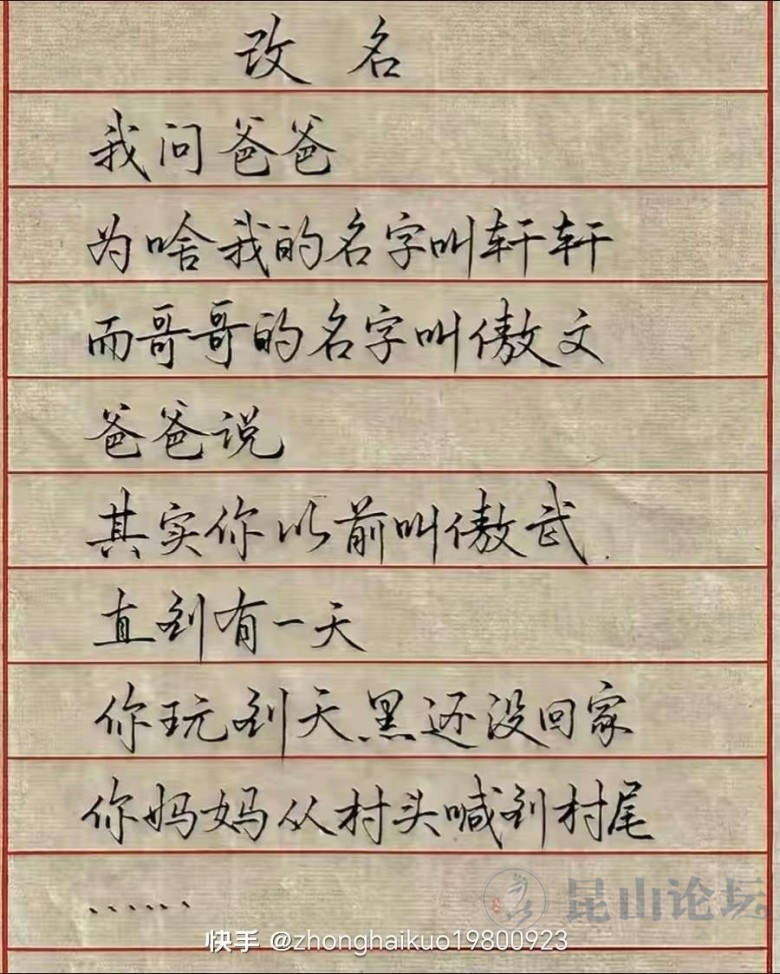 改名
我问爸爸
为啥我的名字叫轩轩
而哥哥的名字叫傲文
爸爸说
其实你以前叫傲武.
直到有一天
你玩到天黑还没回家
你妈妈从村头喊到村尾
......
昆山论坛
快手 @zhonghaikuo19800923